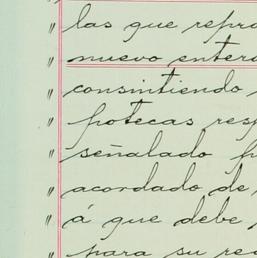 " las que repro
" nuevo entera
" consintiendo
" potecas resp
" señalado p
" acordado de
" á que debe
" para su re